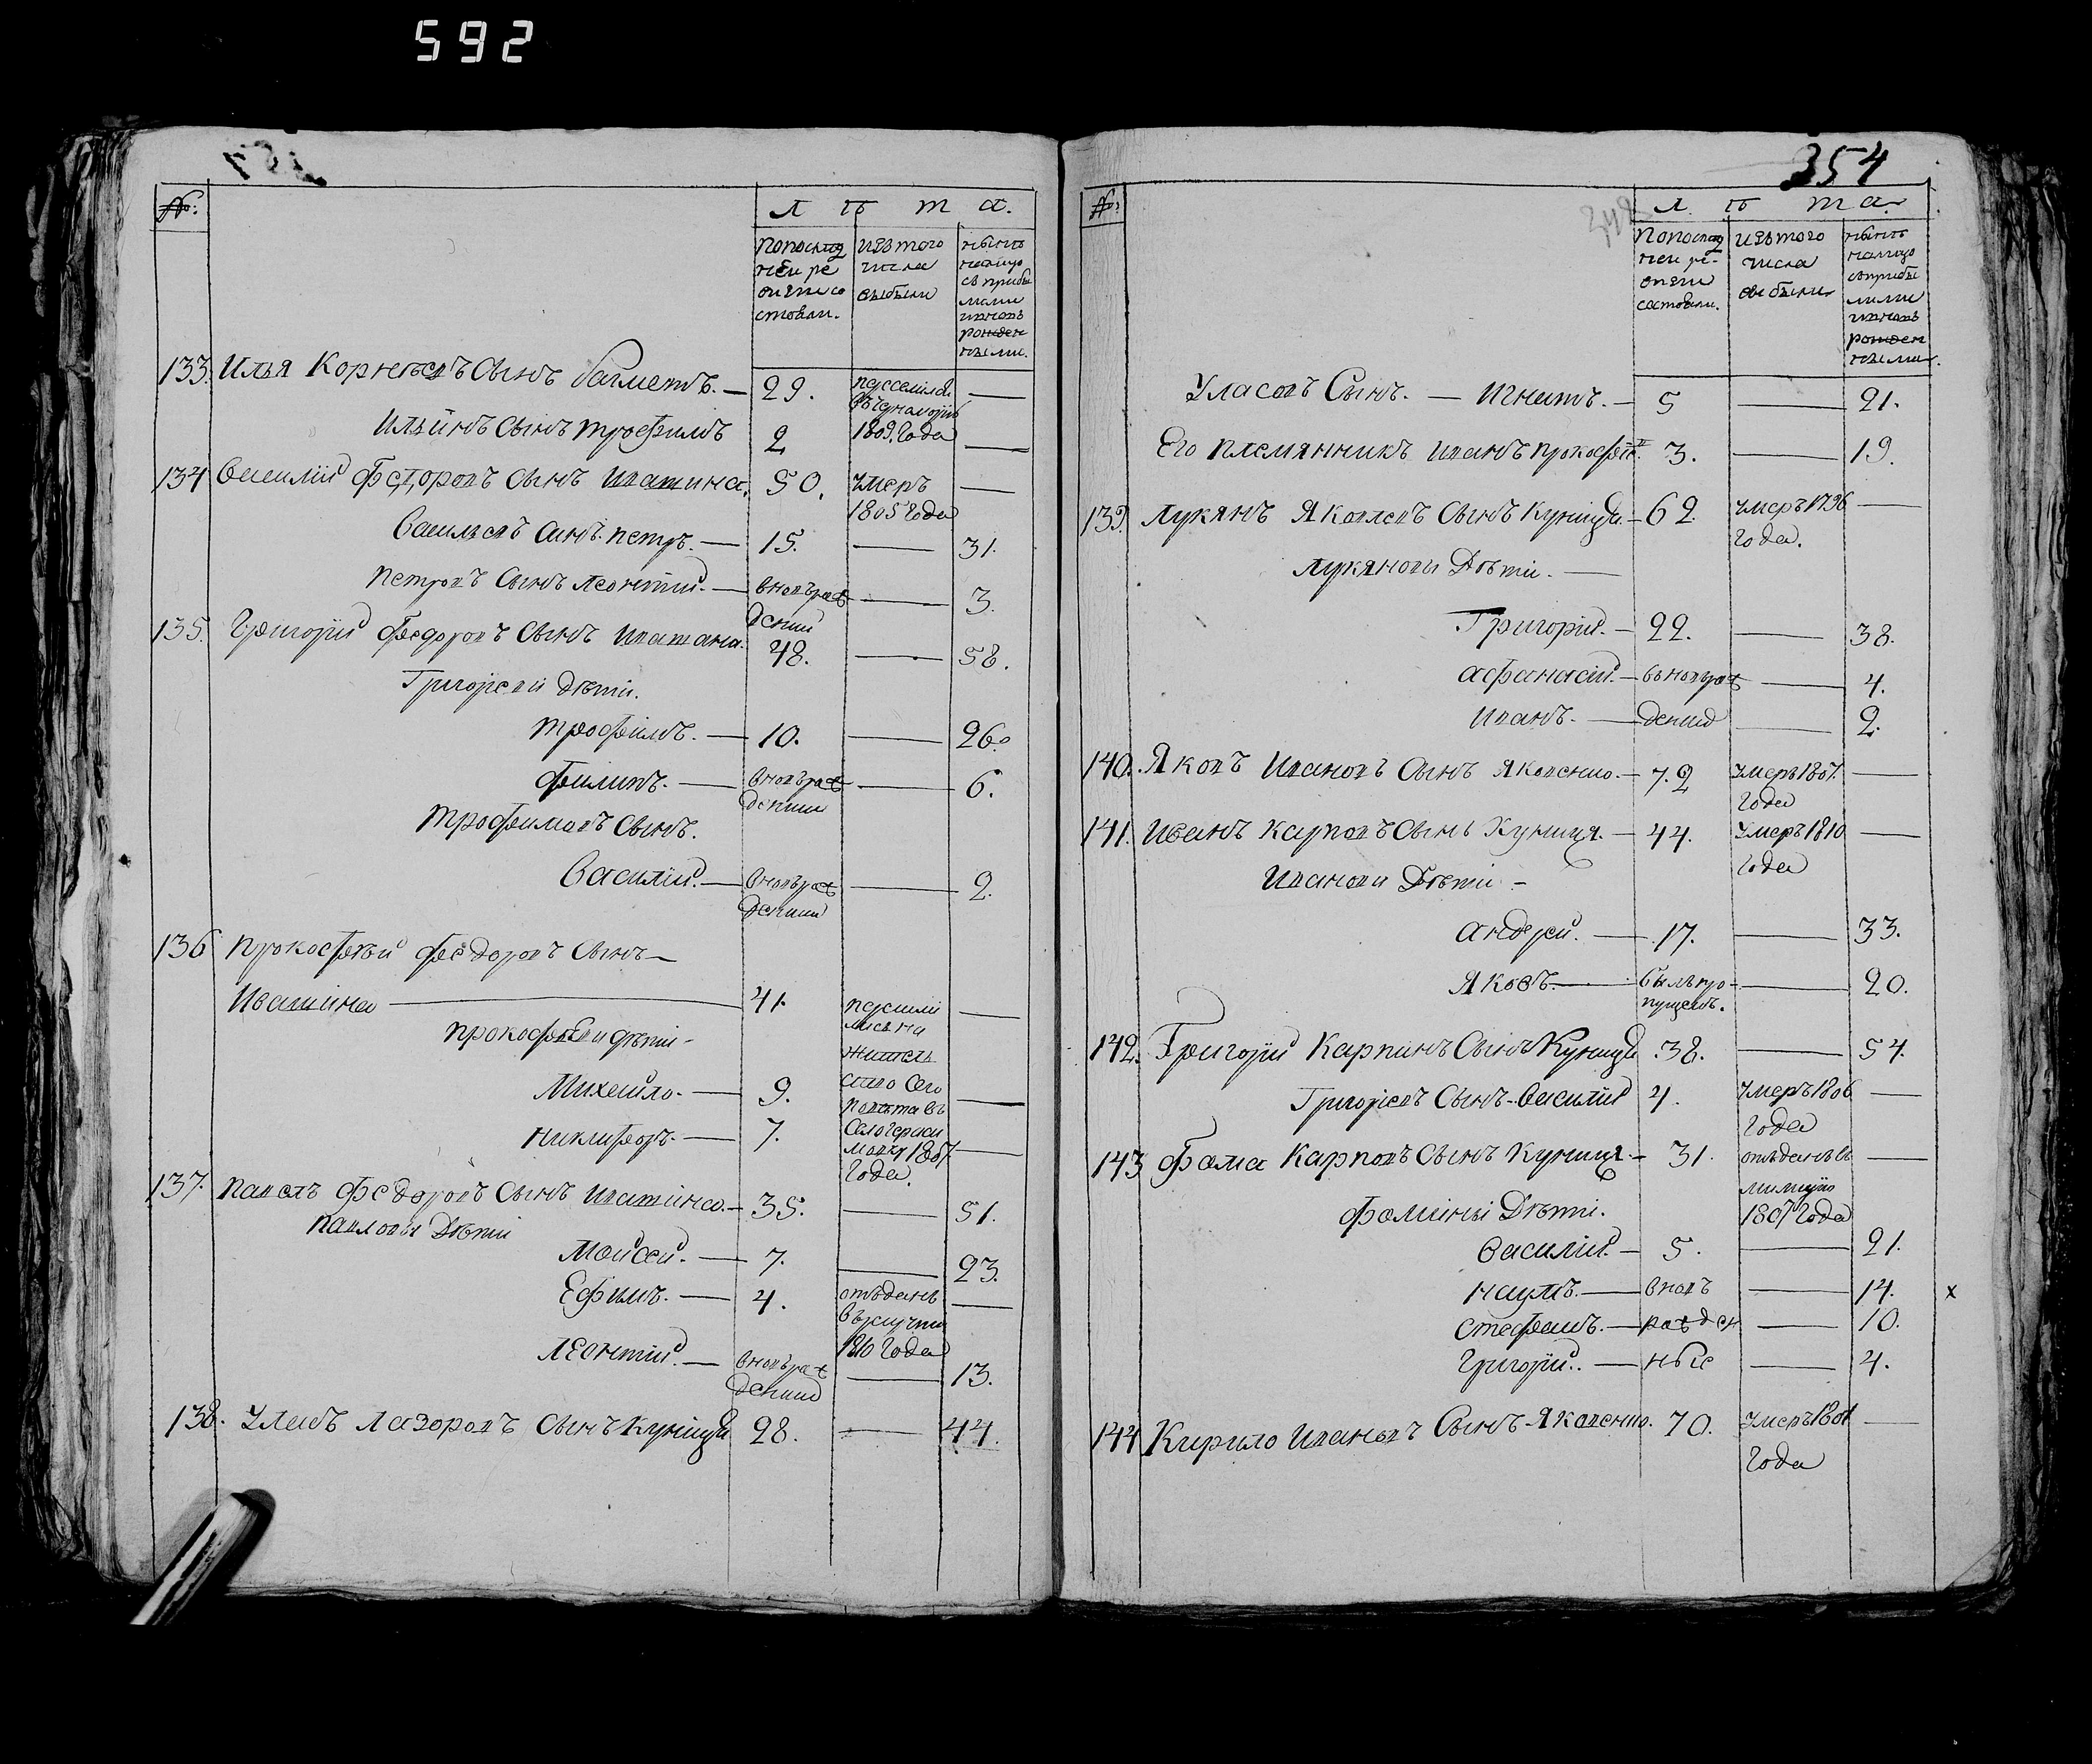 592
354
№:
Л ѣ т а.
По послѣд
ней ре
визіи со
стояли.
Изъ того
числа
выбыли
Нынѣ
налицо
съ прибы
лыми
и вновь
рожден
ными.
133. Илья Корнѣевъ Сынъ Багметъ. — 29. —
1809. Года
Ильинъ Сынъ Трофимъ 2 —
134 Василій Федоровъ Сынъ Ивашина. 50. Умеръ —
1805 Года
Васильевъ Сынъ Петръ. — 15. — 31.
Петровъ Сынъ Леонтій. — вновь рож — 3.
деній
135. Григорій Федоровъ Сынъ Ивашина. 48. — 58.
Григорьевы Дѣти.
Трофимъ. — 10. — 26.
Филипъ. — вновь рож — 6.
деній
Трофимовъ Сынъ.
Василій. — вновь рож — 2.
деній
136 Прокофѣй Федоровъ Сынъ —
Ивашина — 41. —
Прокофѣевы дѣти —
Михайло. — 9. —
Никифоръ. — 7. —
1807
Года.
137. Павелъ Федоровъ Сынъ Ивашина. — 35. — 51.
Павловы Дѣти
Мойсей. — 7. — 23.
Ефимъ. — 4. отъданъ —
в рекруты
1810 Года
Леонтій. — вновь рож — 13.
деній
138. Уласъ Лазоровъ Сынъ Куница 28. — 44.
№:
Л ѣ т а.
По послѣд
ней ре-
визіи
состояли.
Изъ того
числа
выбыли
Нынѣ
налицо
съ прибы
лыми
и вновь
рожден
ными.
Уласовъ Сынъ. — Игнатъ. — 5 — 21.
Его Племянникъ Иванъ Прокофѣв. 3. — 19.
139. Лукянъ Яковлевъ Сынъ Куница. — 62. Умеръ 1796 —
Года.
Лукяновы Дѣти. —
Григорій. — 22. — 38.
Афанасій. — вновь рож — 4.
Иванъ. — деній — 2.
140. Яковъ Ивановъ Сынъ Яковенко. — 72 Умеръ 1807. —
Года
141. Иванъ Карповъ Сынъ Куница. — 44. Умеръ 1810 —
Года
Ивановы Дѣти —
Андрей. — 17. — 33.
Яковъ. — былъ про- — 20.
пущенъ.
142. Григорій Карпинъ Сынъ Куница 38. — 54.
Григорьевъ Сынъ Василій 4. Умеръ 1806 —
Года
143 Фома Карповъ Сынъ Куница. — 31. отъданъ въ —
милицію
1807 Года
Фомины Дѣти.
Василій. — 5. — 21.
Наумъ. — вновь — 14. x
Стефанъ. — рожден — 10.
Григорій. — ные — 4.
144 Кирило Ивановъ Сынъ Яковенко. 70. Умеръ 1801 —
Года